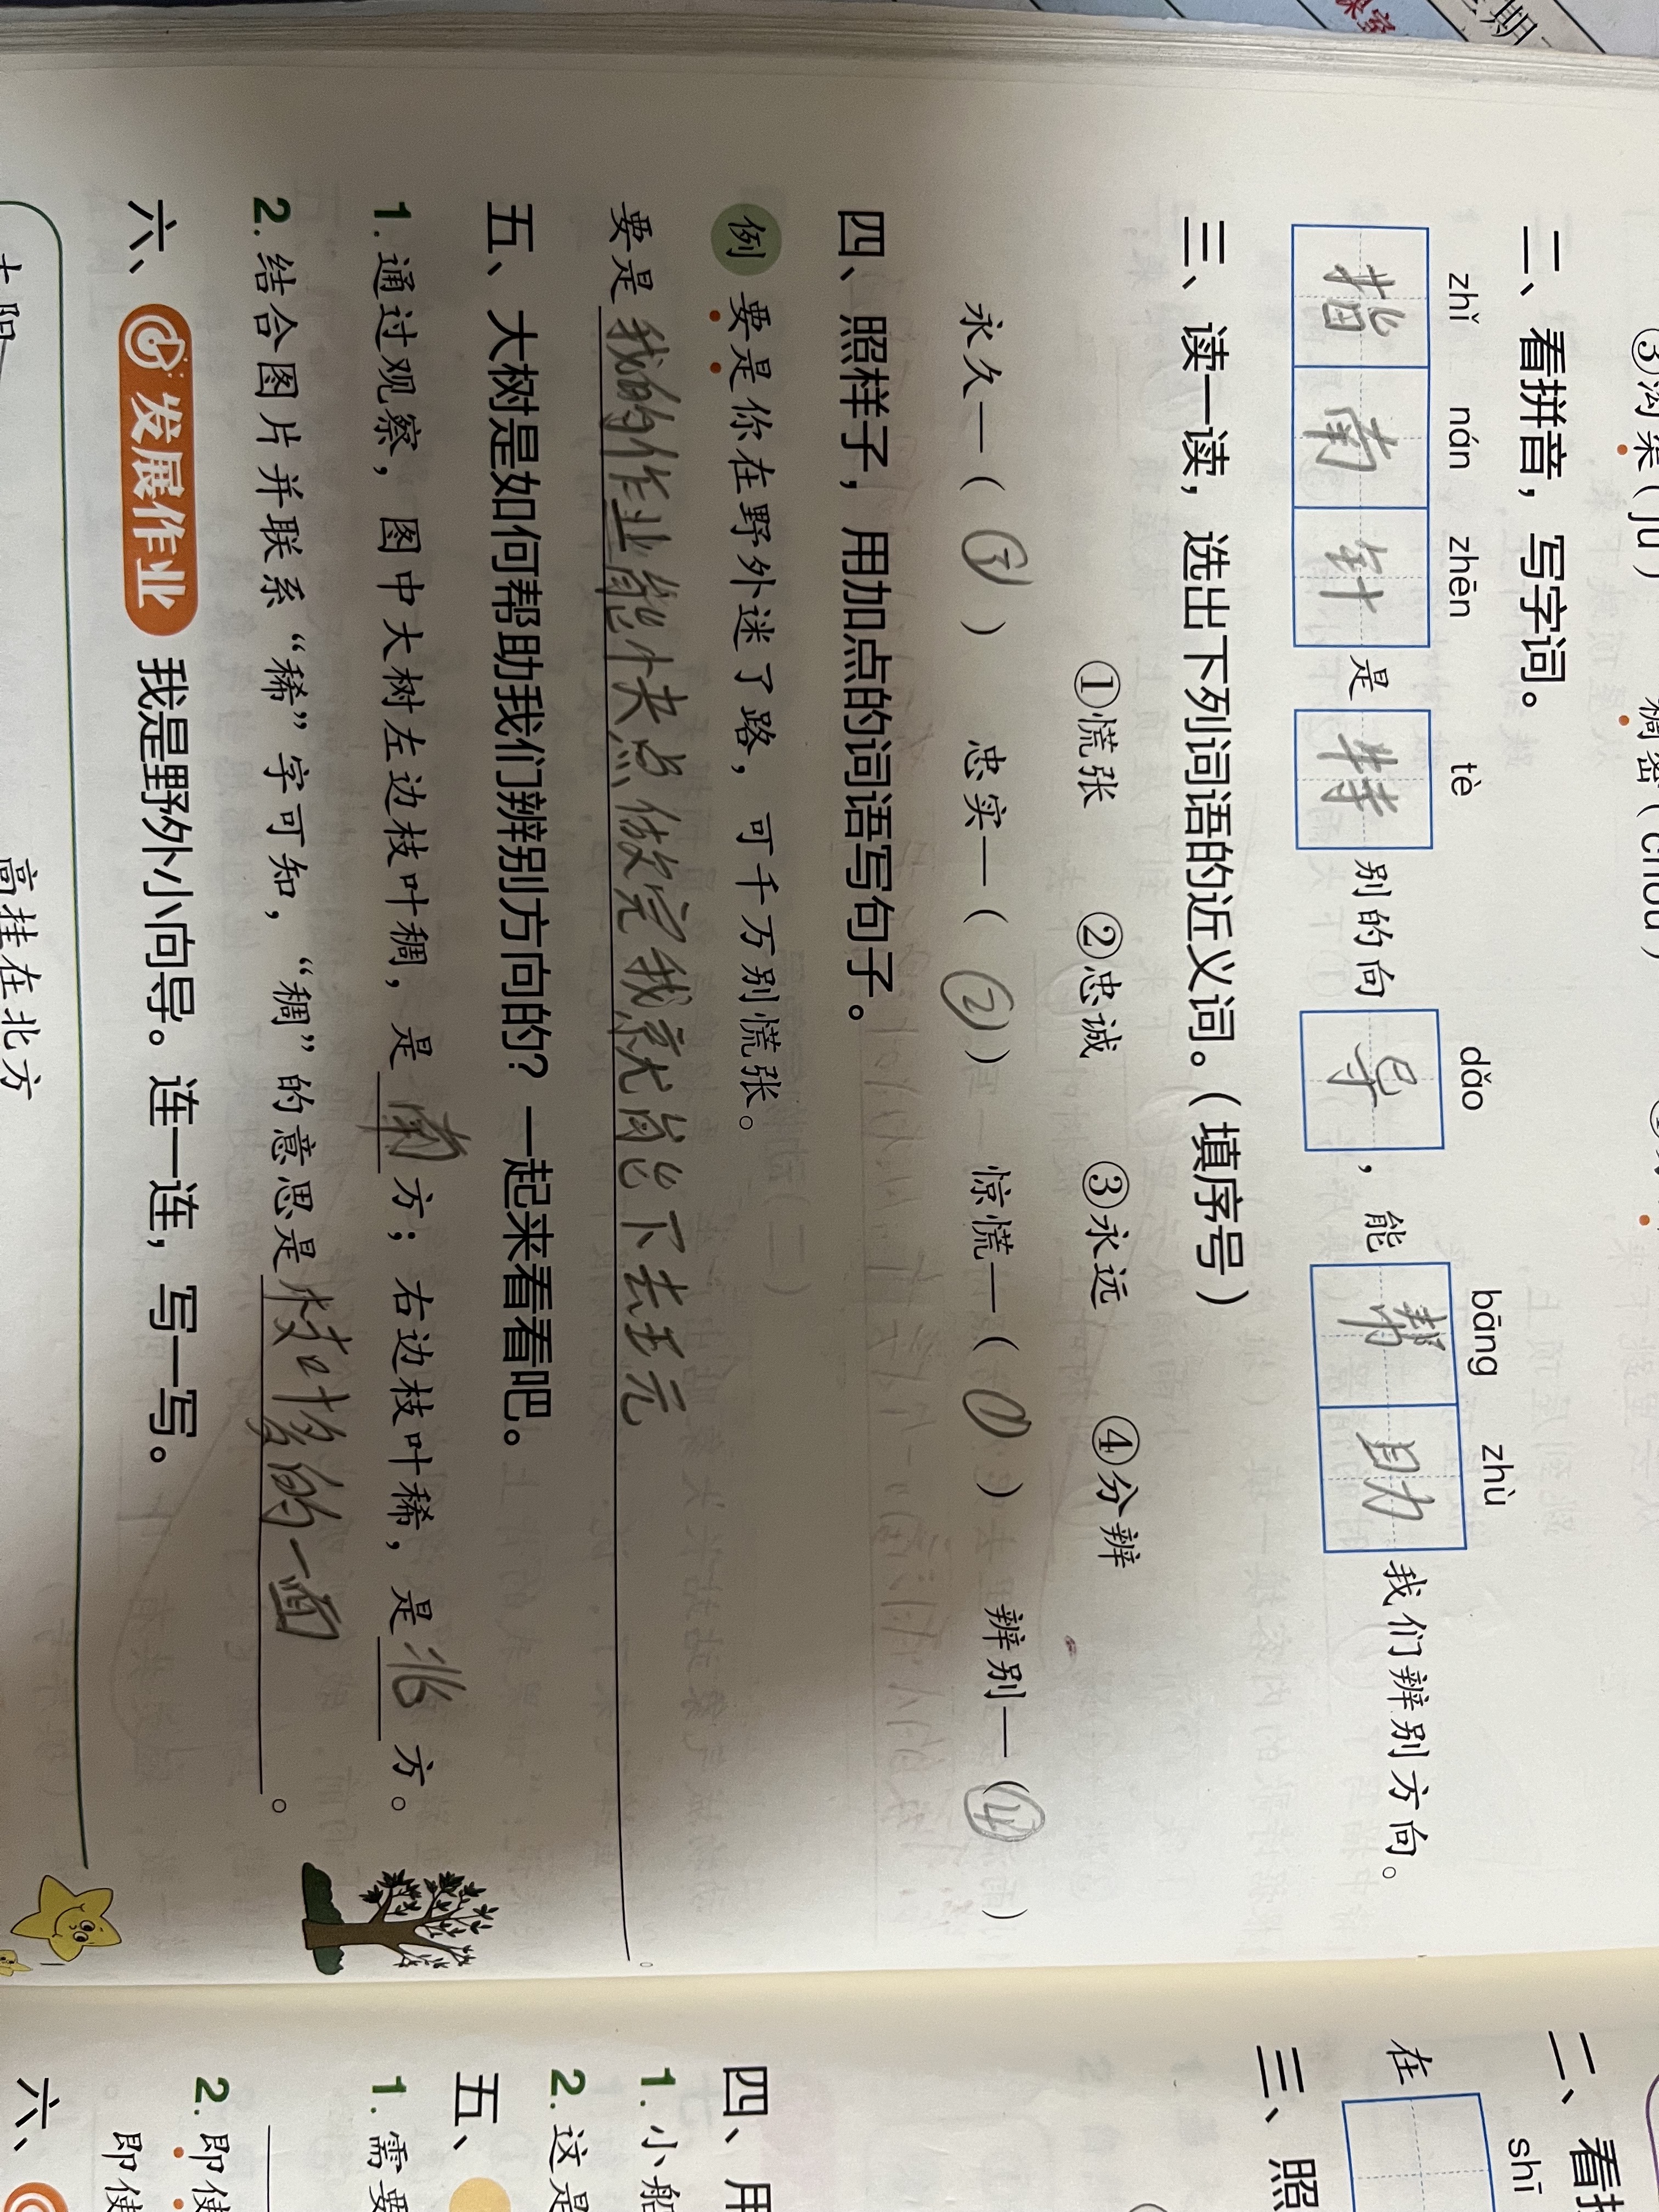 ③沟渠(jú)
稠密(chóu)
二、看拼音，写字词。
zhǐ nán zhēn tè dǎo bāng zhù
指南针是特别的向导，能帮助我们辨别方向。
三、读一读，选出下列词语的近义词。（填序号）
①慌张 ②忠诚 ③永远 ④分辨
永久—（③） 忠实—（②） 惊慌—（①） 辨别—（④）
四、照样子，用加点的词语写句子。
例 要是你在野外迷了路，可千万别慌张。
要是我的作业能快点做完我就能下去玩。
五、大树是如何帮助我们辨别方向的？一起来看看吧。
1.通过观察，图中大树左边枝叶稠，是南方；右边枝叶稀，是北方。
2.结合图片并联系“稀”字可知，“稠”的意思是枝叶多的一面。
六、发展作业 我是野外小向导。连一连，写一写。
太阳
高挂在北方
二、看拼
shī
在
三、照
四、用
1.小船
2.这是
五、
1.需要
2.即使
即使
六、